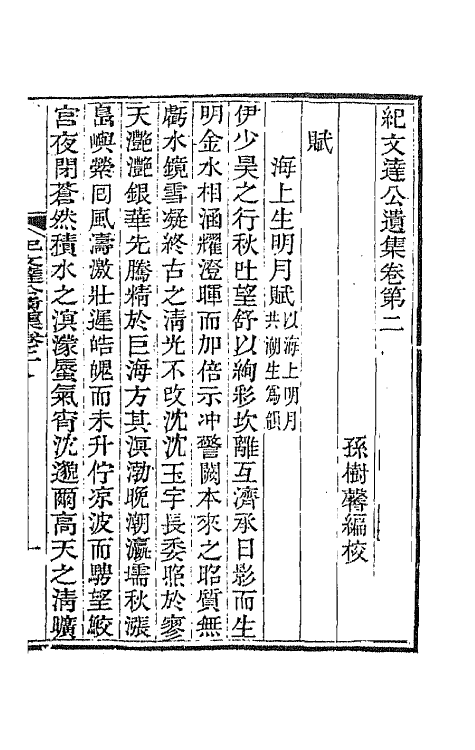 紀文達公遺集卷第二
孫樹馨編校
賦
海上生明月賦以海上明月共潮生爲韻
伊少昊之行秋吐望舒以絢彩坎離互濟承日影而生
明金水相涵耀澄暉而加倍示冲警闕本來之昭質無
虧水鏡雪凝終古之清光不改沈沈玉宇長委照於寥
天灧灧銀華先騰精於巨海方其溟渤晚潮瀛壖秋漲
島嶼縈囘風濤激壯遲皓魄而未升佇凉波而騁望鮫
宮夜閉蒼然積水之溟濛蜃氣宵沈邈爾高天之清曠